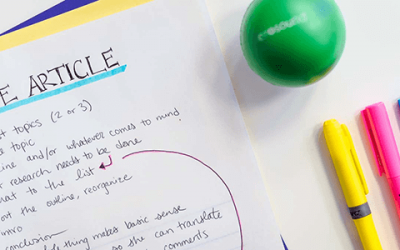 E ARTICLE
st topics (2 or 3)
e topic
ine and/or whatever comes to mind
r research needs to be done
hat to the list
out the outline, reorganize
intro
conclusion
thing makes basic sense
so she can translate
comments